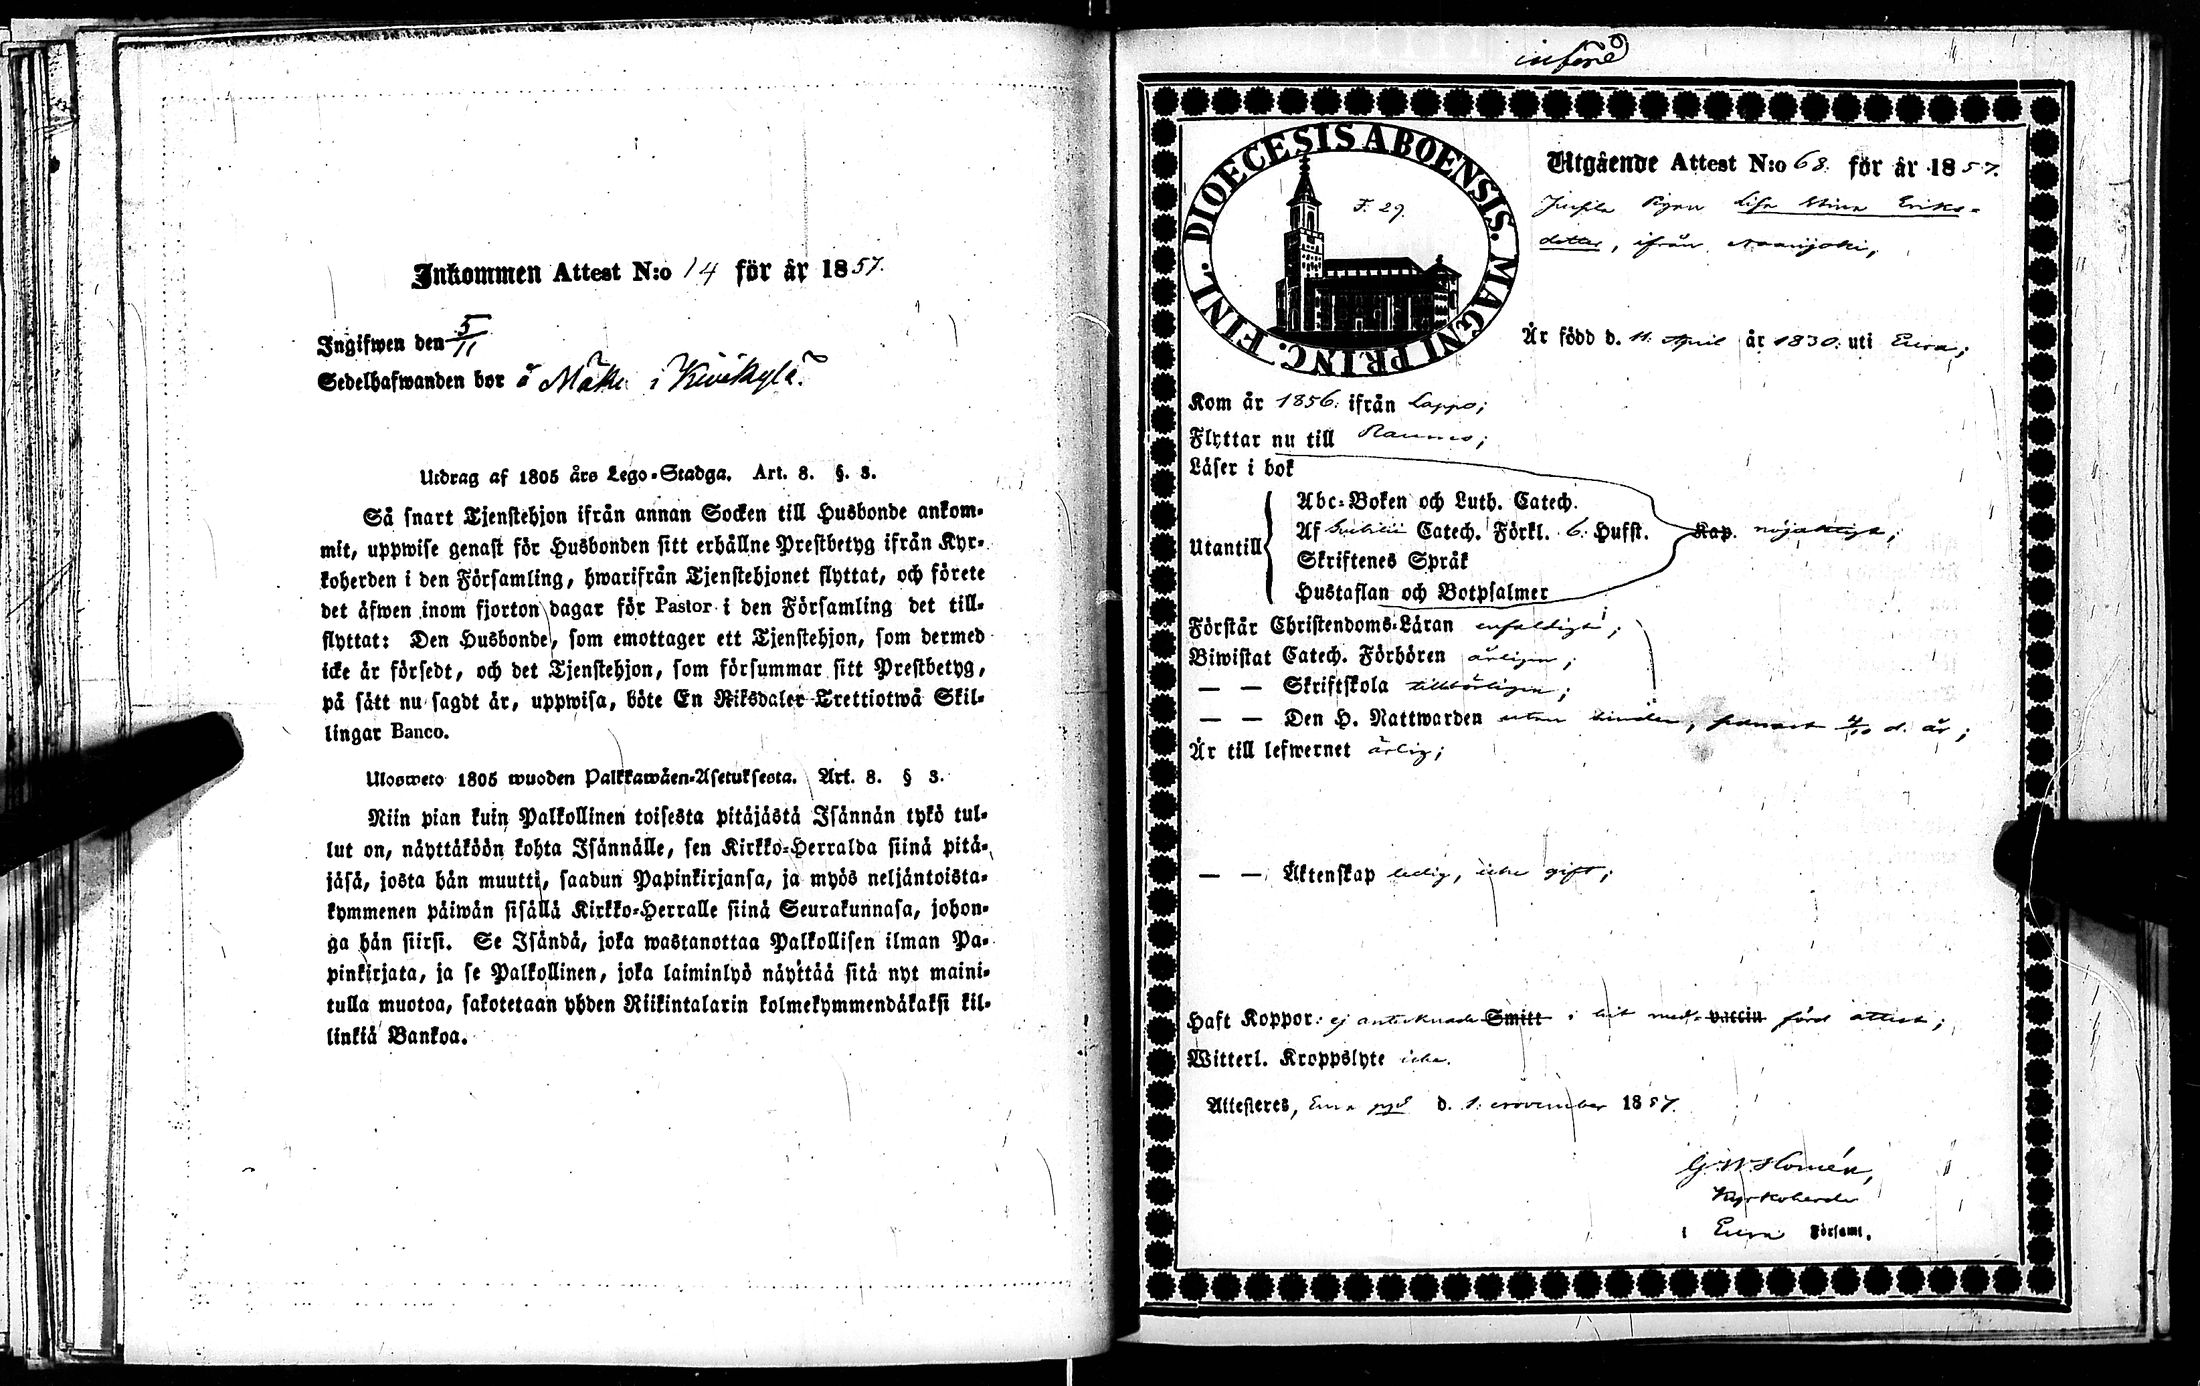 Inkommen Attest N:o 14 för år 1857.
Ingifwen den 5/11
Sedelhafwanden bor å Mäki i Kiwikylä.
Utdrag af 1805 års Lego-Stadga. Art. 8. §. 3.
Så snart Tjenstehjon ifrån annan Socken till Husbonde ankom-
mit, uppwise genast för Husbonden sitt erhållne Prestbetyg ifrån Kyr-
koherden i den Församling, hwarifrån Tjenstehjonet flyttat, och förete
det äfwen inom fjorton dagar för Pastor i den Församling det till-
flyttat: Den Husbonde, som emottager ett Tjenstehjon, som dermed
icke är försedt, och det Tjenstehjon, som försummar sitt Prestbetyg,
på sätt nu sagdt är, uppwisa, böte En Riksdaler Trettiotwå Skil-
lingar Banco.
Ulosweto 1805 wuoden Palkkawäen-Asetuksesta. Art. 8. § 3.
Niin pian kuin Palkollinen toisesta pitäjästä Isännän tykö tul-
lut on, näyttäköön kohta Isännälle, sen Kirkko-Herralda siinä pitä-
jäsä, josta hän muutti, saadun Papinkirjansa, ja myös neljäntoista-
kymmenen päiwän sisällä Kirkko-Herralle siinä Seurakunnasa, johon-
ga hän siirsi. Se Isändä, joka wastanottaa Palkollisen ilman Pa-
pinkirjata, ja se Palkollinen, joka laiminlyö näyttää sitä nyt maini-
tulla muotoa, sakotetaan yhden Riikintalarin kolmekymmendäkaksi kil-
linkiä Bankoa.
införd
DIOECESIS ABOENSIS. MAGNI PRINC. FINL.
F. 29.
Utgående Attest N:o 68. för år 1857.
Pigan Lisa Stina Eriks-
dotter, ifrån Naarijoki;
Är född d. 11. April år 1830. uti Eura;
Kom år 1856. ifrån Lappo;
Flyttar nu till Raumo;
Läser i bok
Utantill
Abc-Boken och Luth. Catech.
Af Catech. Förkl. 6. Hufst. Kap. nöjaktigt;
Skriftenes Språk
Hustaflan och Botpsalmer
Förstår Christendoms-Läran enfaldigt;
Biwistat Catech. Förhören årligen;
— — Skriftskola tillbörligen;
— — Den H. Nattwarden utan hinder, senast 4/10 d. år;
Är till lefwernet ärlig;
— — Äktenskap ledig, icke gift;
Haft Koppor: ej antecknadt Smitt i hit med- vaccin förd attest;
Witterl. Kroppslyte icke.
Attesteres, Eura pgd d. 1. November 1857.
G. W. Homén,
Kyrkoherde
i Eura Församl.